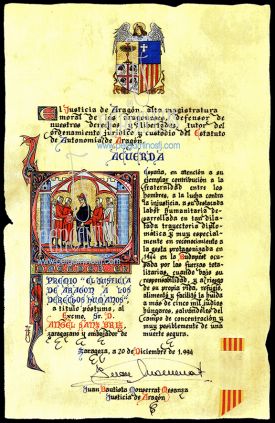 El Justicia de Aragón, alta magistratura
moral de los aragoneses, defensor de
nuestros derechos y libertades, tutor del
ordenamiento jurídico y custodio del Estatuto
de Autonomía de Aragón,
www.pergaminostj.com
ACUERDA
España, en atención a su
ejemplar contribución a la
fraternidad entre los
hombres, a la lucha contra
la injusticia, a su destacada
labor humanitaria desa-
rrollada en tan dila-
tada trayectoria diplo-
mática y muy especial-
mente en reconocimiento a
la gesta protagonizada en
1944 en la Budapest ocupa-
da por las fuerzas tota-
litarias, cuando bajo su
responsabilidad, y a riesgo
de su propia vida, refugió,
alimentó y facilitó la huida
a más de cinco mil judíos
húngaros, salvándoles del
Campo de concentración y
muy posiblemente de una
muerte segura.
PREMIO "EL JUSTICIA
DE ARAGÓN A LOS
DERECHOS HUMANOS"
a título póstumo, al
Excmo. Sr. D.
ANGEL SANZ BRIZ,
zaragozano y embajador de
Zaragoza, a 20 de Diciembre de 1994
Juan Bautista Monserrat Mesanza
Justicia de Aragón